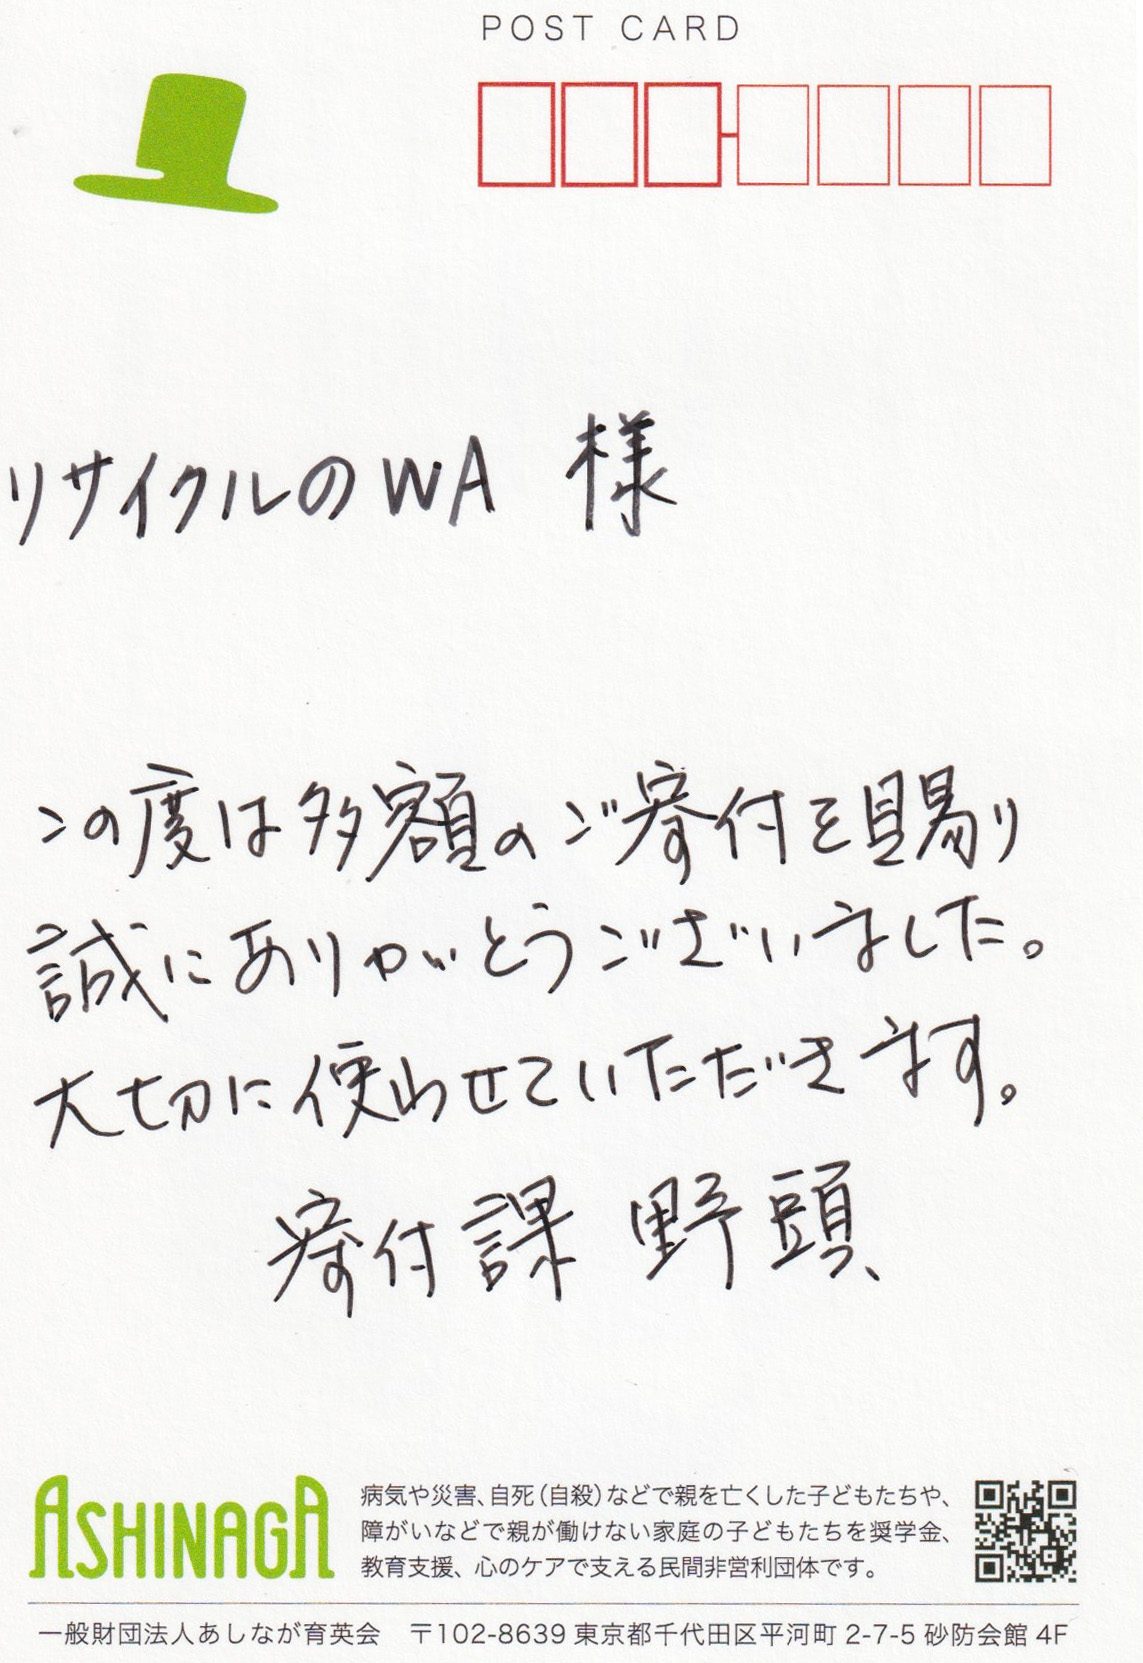 POST CARD
リサイクルのWA 様
この度は多額のご寄付を賜り
誠にありがとうございました。
大切に使わせていただきます。
寄付課 野頭
ASHINAGA
病気や災害、自死(自殺)などで親を亡くした子どもたちや、
障がいなどで親が働けない家庭の子どもたちを奨学金、
教育支援、心のケアで支える民間非営利団体です。
一般財団法人あしなが育英会 〒102-8639 東京都千代田区平河町 2-7-5 砂防会館 4F